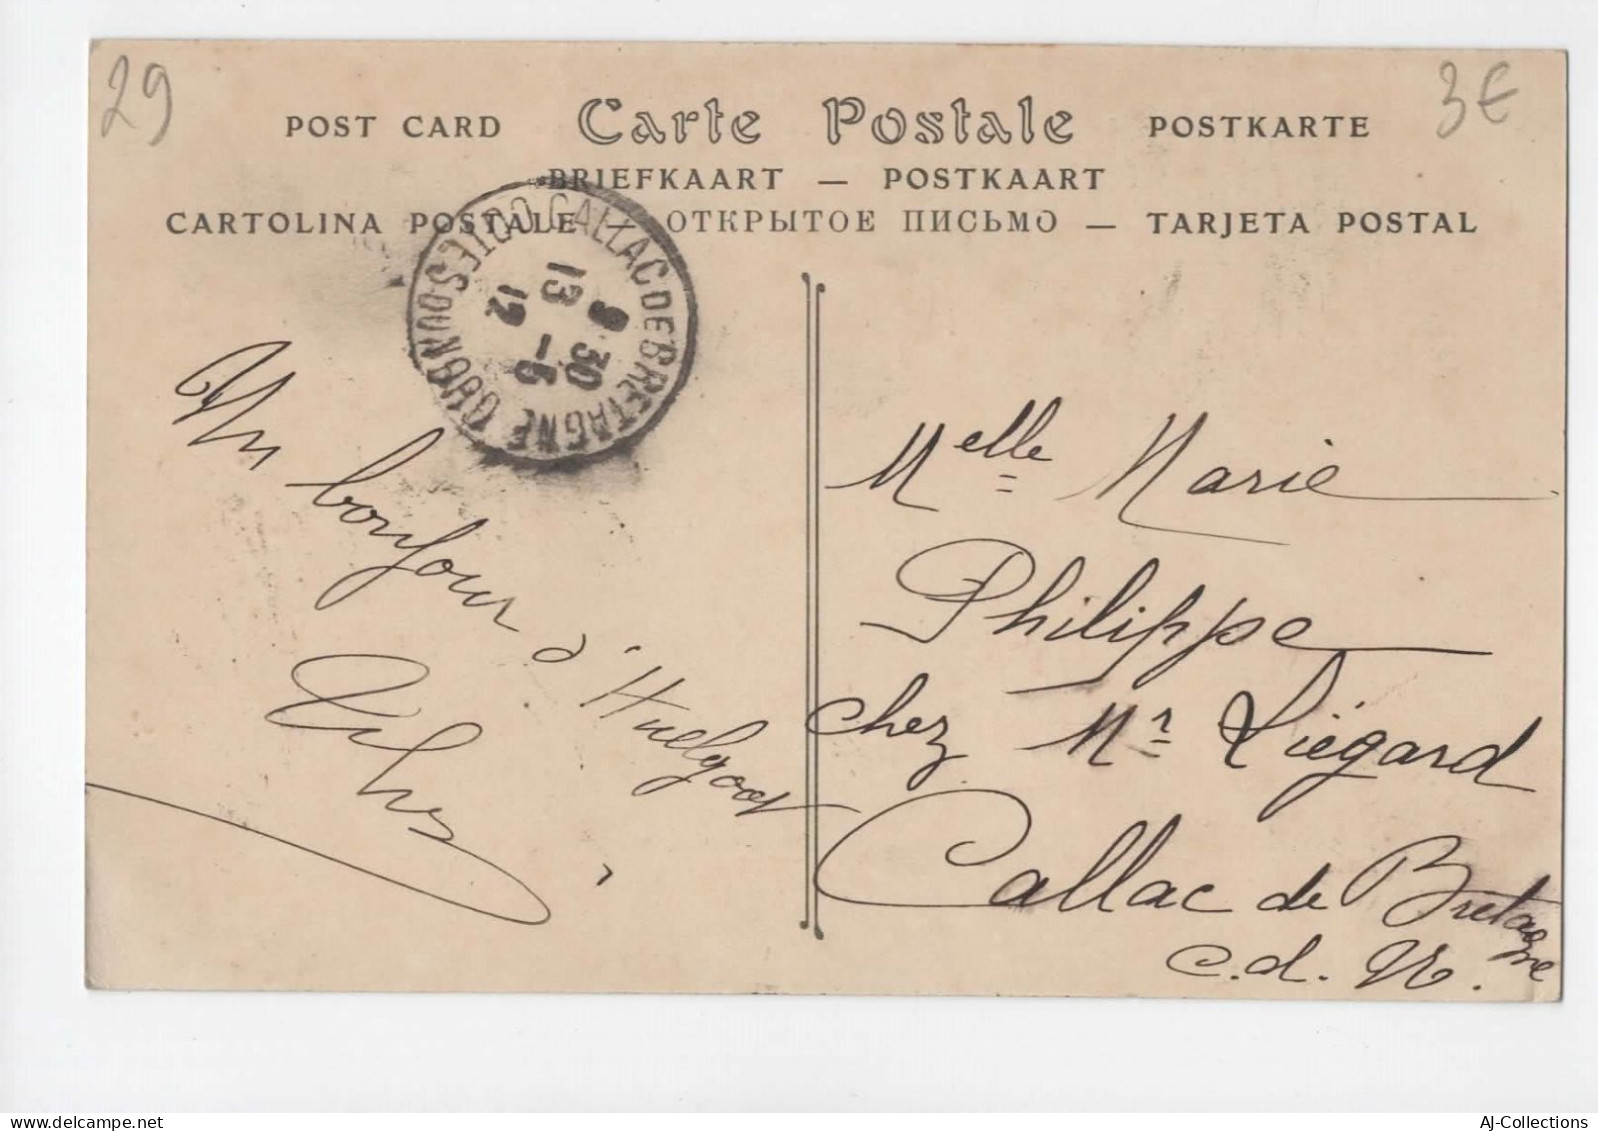 29
3€
POST CARD Carte Postale POSTKARTE
BRIEFKAART — POSTKAART
CARTOLINA POSTALE — ОТКРЫТОЕ ПИСЬМО — TARJETA POSTAL
CALLAC DE BRETAGNE
COTES DU NORD
9 30
13 - 5
12
Un bonjour d'Huelgoat
Melle Marie
Philippe
chez Mr Liégard
Callac de Bretagne
C.d.N.
AJ-Collections